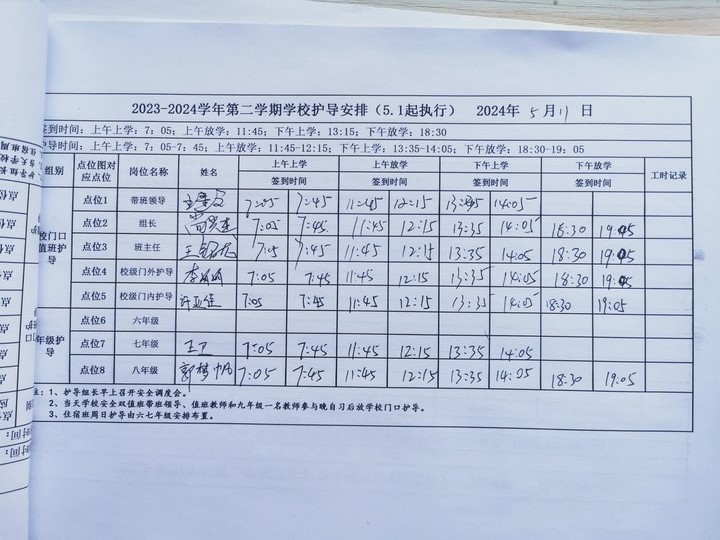 2023-2024学年第二学期学校护导安排（5.1起执行） 2024年 5 月 11 日
签到时间：上午上学：7：05；上午放学：11:45；下午上学：13:15；下午放学：18:30
护导时间：上午上学：7：05-7：45；上午放学：11:45-12:15；下午上学：13:35-14:05；下午放学：18:30-19：05
组别 点位图对应点位 岗位名称 姓名 上午上学 上午放学 下午上学 下午放学 工时记录
签到时间 签到时间 签到时间 签到时间
点位1 带班领导 7:05 7:45 11:45 12:15 13:45 14:05
点位2 组长 7:05 7:45 11:45 12:15 13:35 14:05 18:30 19:05
校门口值班护导 点位3 班主任 7:05 7:45 11:45 12:15 13:35 14:05 18:30 19:05
点位4 校级门外护导 7:05 7:45 11:45 12:15 13:35 14:05 18:30 19:05
点位5 校级门内护导 许亚佳 7:05 7:45 11:45 12:15 13:35 14:05 18:30 19:05
点位6 六年级
年级护导 点位7 七年级 王卫 7:05 7:45 11:45 12:15 13:35 14:05
点位8 八年级 郭梦帆 7:05 7:45 11:45 12:15 13:35 14:05 18:30 19:05
注：1、护导组长早上召开安全调度会。
2、当天学校安全双值班带班领导、值班教师和九年级一名教师参与晚自习后放学校门口护导。
3、住宿班周日护导由六七年级安排布置。